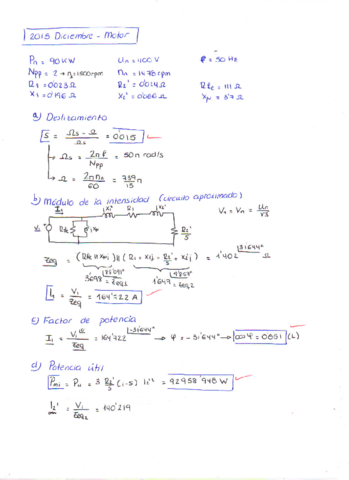 2015 Diciembre - Motor
Pn = 90 KW Un = 1100 V f = 50 Hz
Npp = 2 → n = 1500 rpm nn = 1478 rpm
R1 = 0'023 Ω R2' = 0'024 Ω Rfe = 111 Ω
X1 = 0'196 Ω X2' = 0'066 Ω Xμ = 3'7 Ω
a) Deslizamiento
S = Ωs - Ω / Ωs = 0'015
→ Ωs = 2πf / Npp = 50π rad/s
→ Ω = 2πnn / 60 = 739π / 15
b) Módulo de la intensidad (circuito aproximado)
I1 X1 R1 X2'
V1 Rfe R2'/S
V1 = Vn = Un / √3
Zeq = (Rfe // Xμj) // (R1 + X1j + R2'/S + X2'j) = 1'402 |31'644° Ω
= Zeq2
I1 = V1 / Zeq = 164'722 A
c) Factor de potencia
I1 = V1 |0° / Zeq = 164'722 |-31'644° → φ = -31'644° → cosφ = 0'851 (i)
d) Potencia útil
Pmi = Pu = 3 R2'/S (1-s) I2'² = 92958'948 W
I2' = V1 / Zeq2 = 140'219